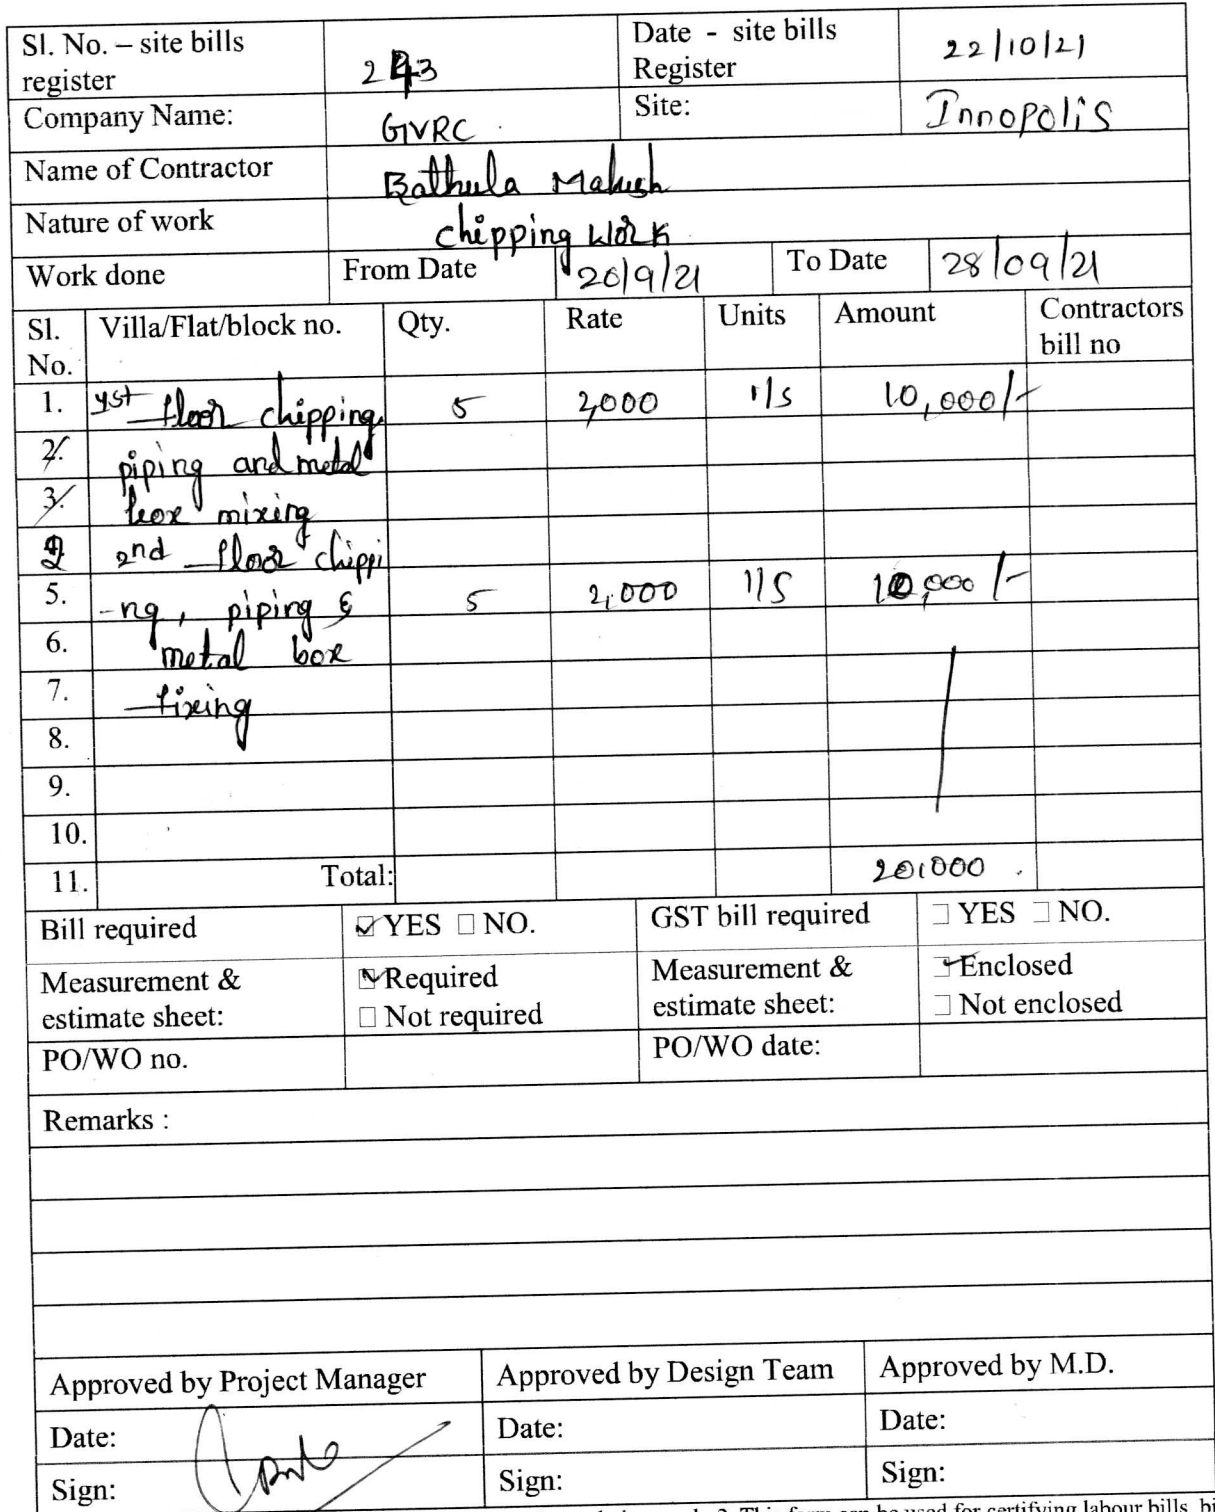 Sl. No. – site bills register 243 Date - site bills Register 22/10/21
Company Name: GVRC. Site: Innopolis
Name of Contractor Bathula Mahesh
Nature of work chipping work
Work done From Date 20/9/21 To Date 28/09/21
Sl. No. Villa/Flat/block no. Qty. Rate Units Amount Contractors bill no
1. 1st floor chipping, 5 2,000 l/s 10,000/-
2. piping and metal
3. box mixing
2 2nd floor chippi
5. -ng, piping & 5 2,000 l/s 10,000/-
6. metal box
7. fixing
8.
9.
10.
11. Total: 20,000.
Bill required ☑ YES □ NO. GST bill required □ YES □ NO.
Measurement & estimate sheet: ☑ Required □ Not required Measurement & estimate sheet: ☑ Enclosed □ Not enclosed
PO/WO no. PO/WO date:
Remarks :
Approved by Project Manager Approved by Design Team Approved by M.D.
Date: Date: Date:
Sign: Sign: Sign:
2. This form can be used for certifying labour bills,